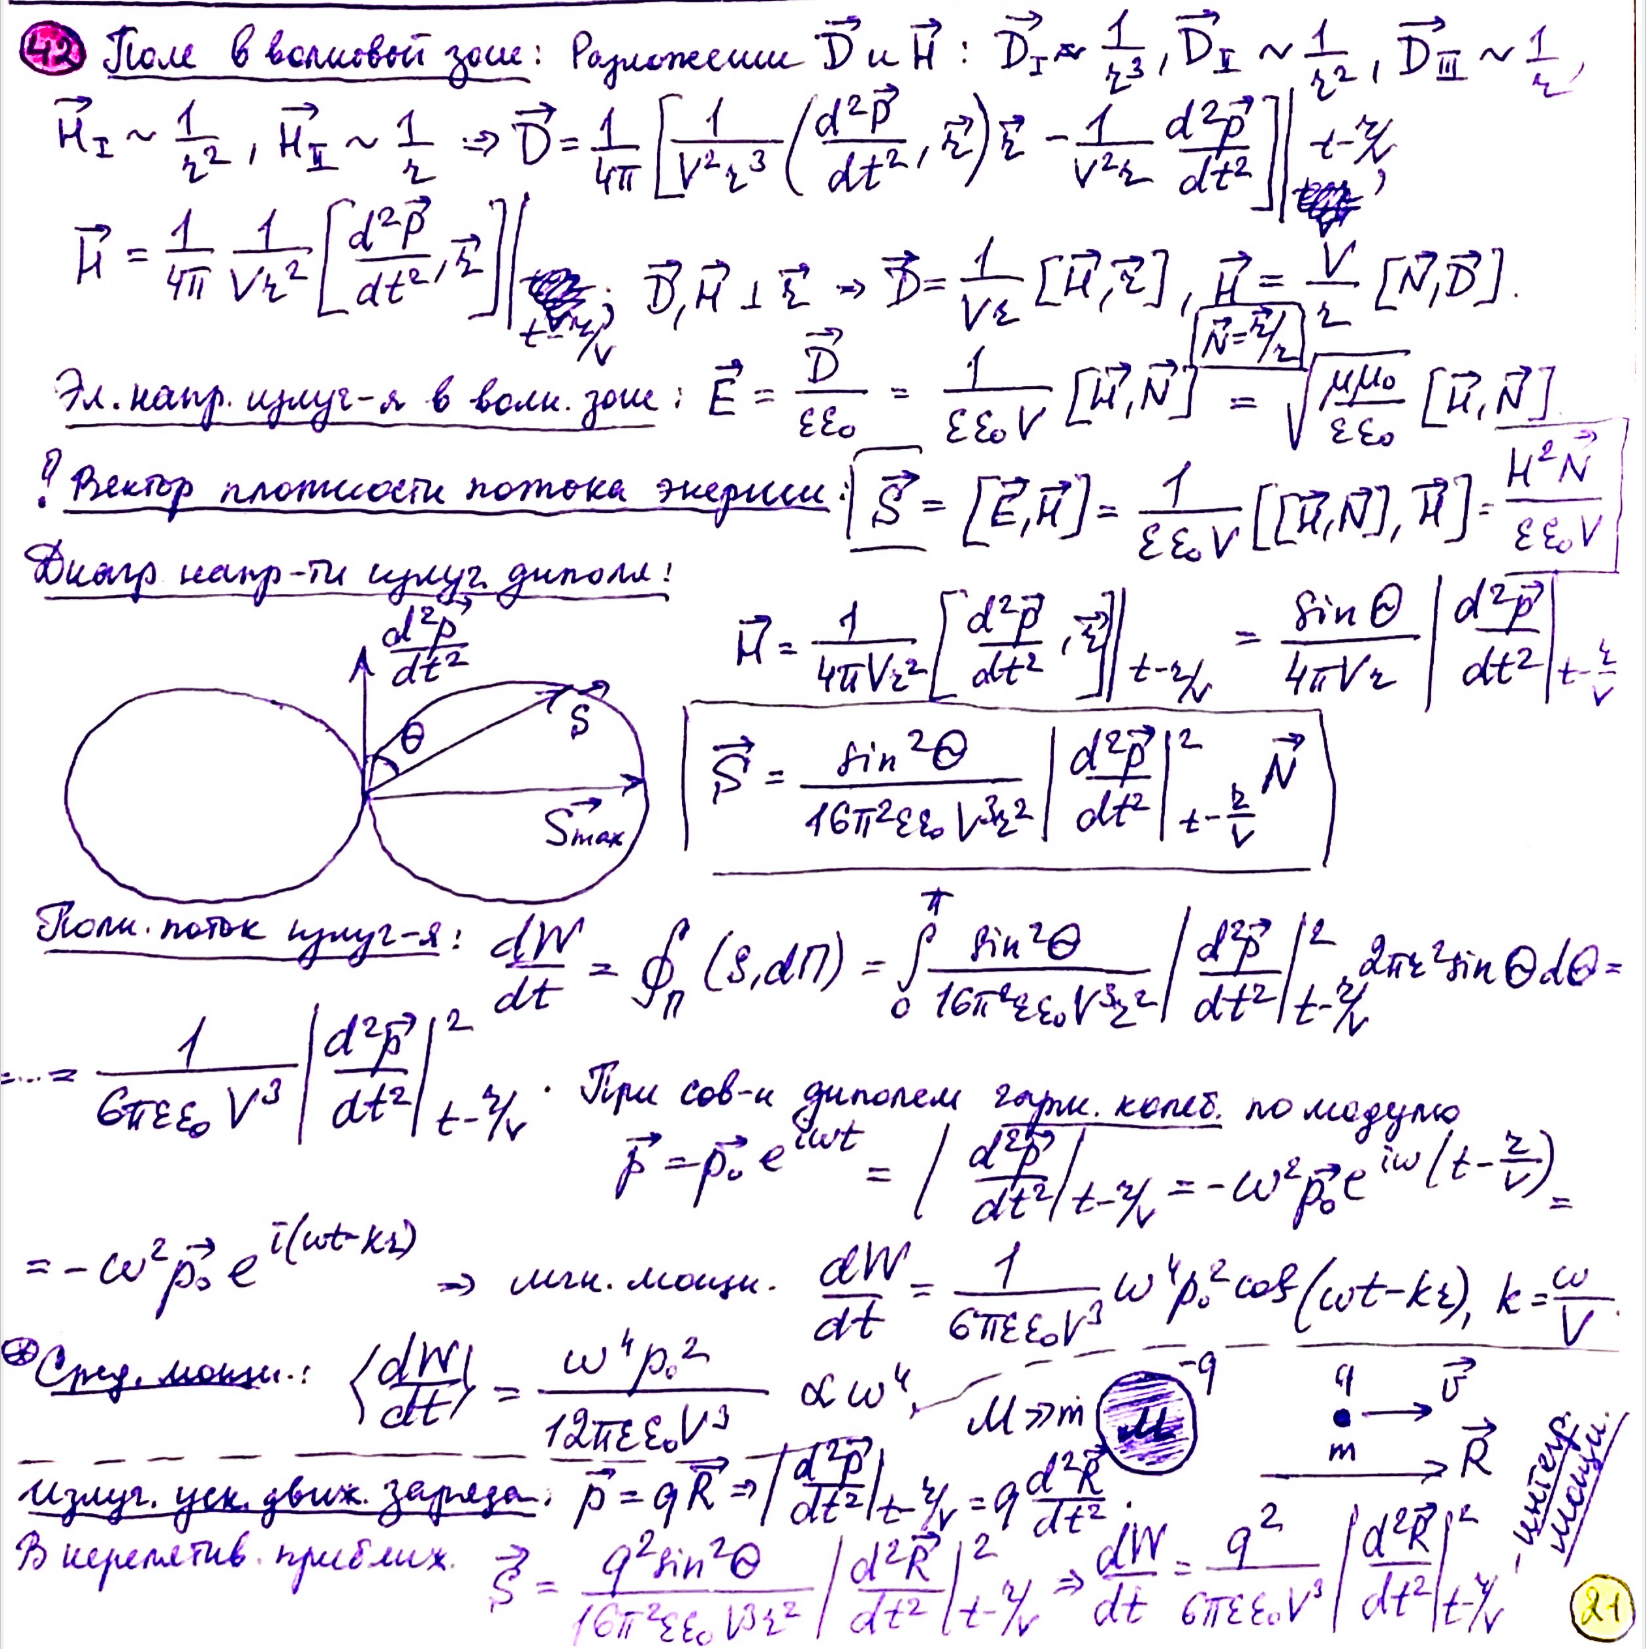 42 Поле в волновой зоне: Разложении D⃗ и H⃗ : D⃗_I ~ 1/r³, D⃗_II ~ 1/r², D⃗_III ~ 1/r,
H⃗_I ~ 1/r², H⃗_II ~ 1/r ⇒ D⃗ = 1/4π [1/(V²r³) (d²p⃗/dt², r⃗) r⃗ − 1/(V²r) d²p⃗/dt²]|t−r/V,
H⃗ = 1/4π 1/(Vr²) [d²p⃗/dt², r⃗]|t−r/V; D⃗, H⃗ ⊥ r⃗ ⇒ D⃗ = 1/(Vr) [H⃗, r⃗], H⃗ = V/r [N⃗, D⃗].
N⃗ = r⃗/r
Эл. напр. излуч-я в волн. зоне: E⃗ = D⃗/(εε₀) = 1/(εε₀V) [H⃗, N⃗] = √(μμ₀/(εε₀)) [H⃗, N⃗]
! Вектор плотности потока энергии: S⃗ = [E⃗, H⃗] = 1/(εε₀V) [[H⃗, N⃗], H⃗] = H²N⃗/(εε₀V)
Диагр напр-ти излуч. диполя:
d²p⃗/dt²
H⃗ = 1/(4πVr²) [d²p⃗/dt², r⃗]|t−r/V = sinθ/(4πVr) |d²p⃗/dt²|t−r/V
θ S
S⃗max
S⃗ = sin²θ/(16π²εε₀V³r²) |d²p⃗/dt²|²t−r/V N⃗
Полн. поток излуч-я: dW/dt = ∮_Π (S, dΠ) = ∫₀^π sin²θ/(16π²εε₀V³r²) |d²p⃗/dt²|²t−r/V 2πr² sinθ dθ =
=...= 1/(6πεε₀V³) |d²p⃗/dt²|²t−r/V . При сов-и диполем гарм. колеб. по модулю
p⃗ = p⃗₀ e^{iωt} = | d²p⃗/dt²|t−r/V = −ω²p⃗₀ e^{iω(t−r/V)} =
= −ω²p⃗₀ e^{i(ωt−kr)} ⇒ мгн. мощн. dW/dt = 1/(6πεε₀V³) ω⁴p₀² cos²(ωt−kr), k = ω/V.
Сред. мощн.: ⟨dW/dt⟩ = ω⁴p₀²/(12πεε₀V³) ∝ ω⁴, M≫m M −q q m v⃗ R⃗
Излуч. уск. движ. заряда: p⃗ = qR⃗ ⇒ |d²p⃗/dt²|t−r/V = q d²R⃗/dt².
В нерелятив. приближ. S⃗ = q² sin²θ/(16π²εε₀V³r²) |d²R⃗/dt²|²t−r/V ⇒ dW/dt = q²/(6πεε₀V³) |d²R⃗/dt²|²t−r/V - интегр. мощн.
21